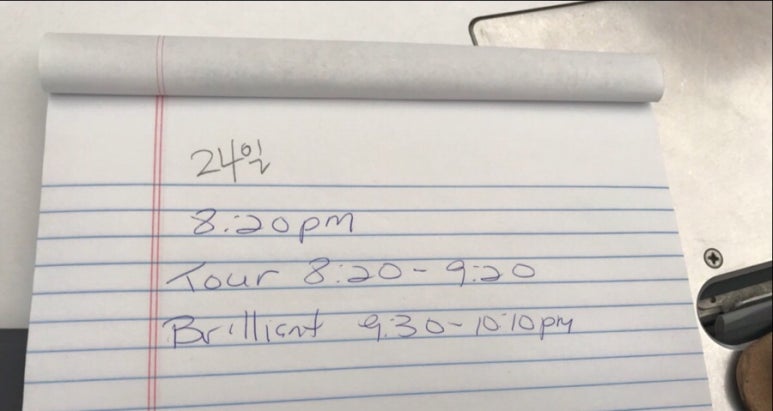 24일
8:20pm
Tour 8:20-9:20
Brilliant 9:30-10:10pm